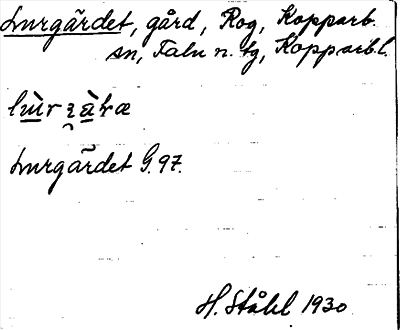 Lurgärdet, gård, Rog, Kopparb.
sn, Falu n. tg, Kopparb.l.
Lurgärdet G.97.
H. Ståhl 1930